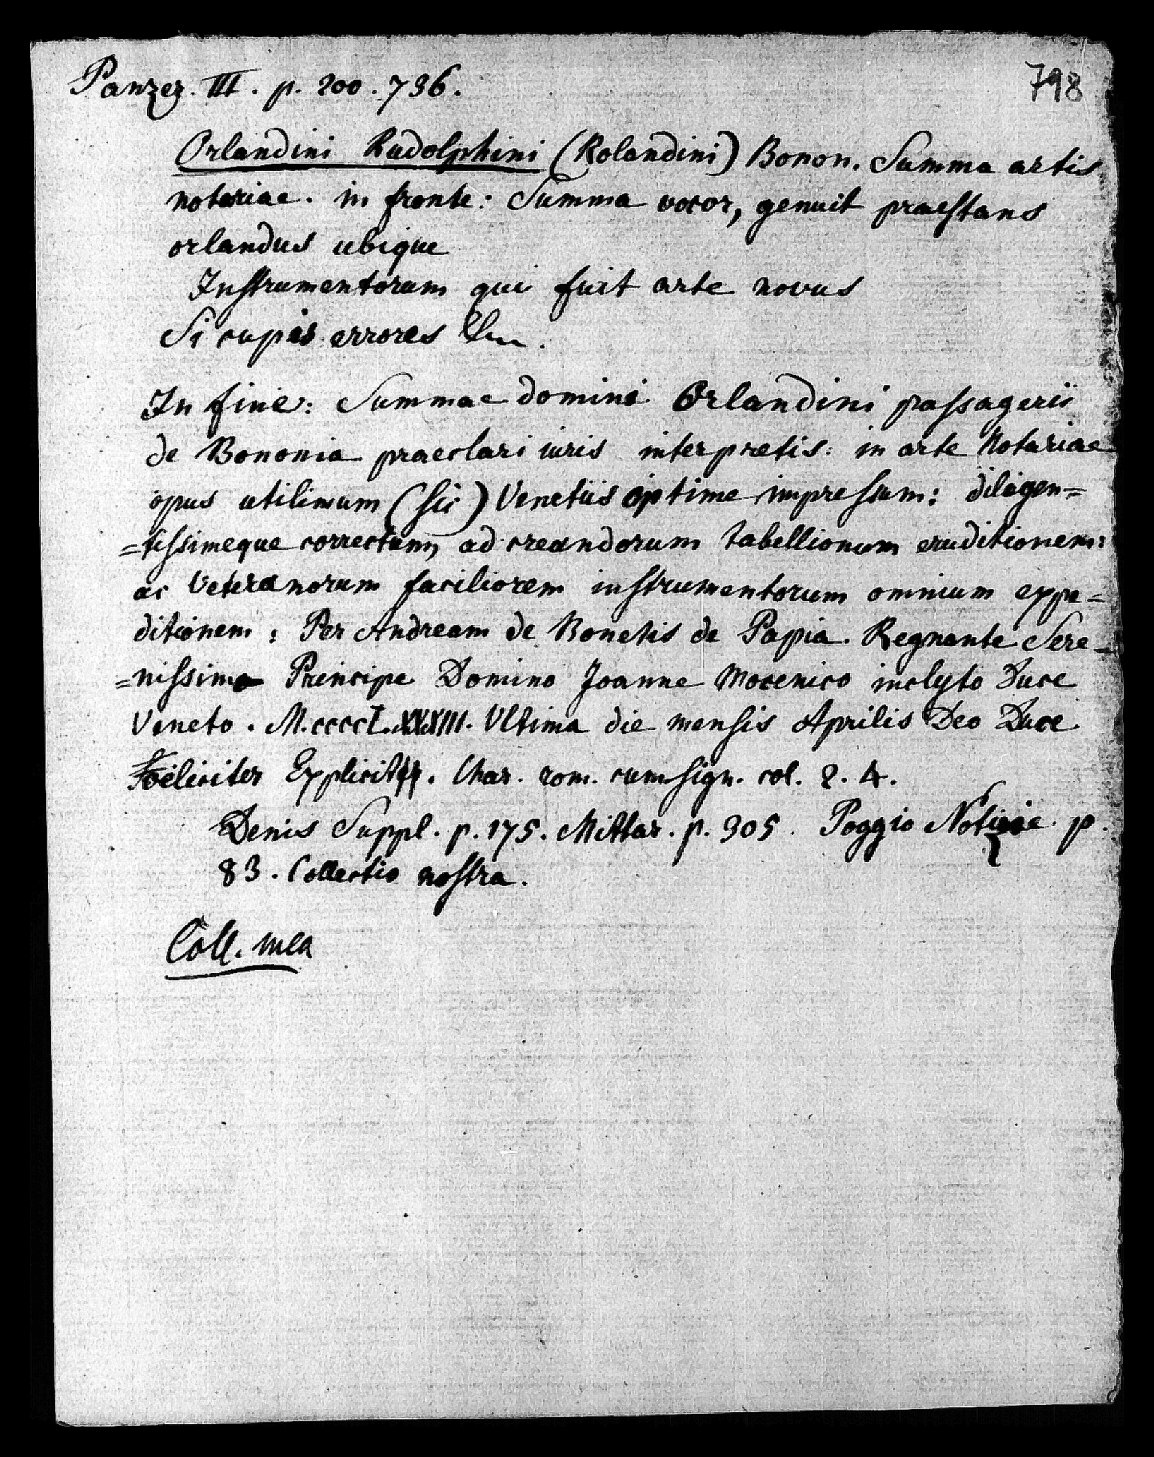 Panzer. III. p. 200. 736.
798
Orlandini Rudolphini (Rolandini) Bonon. Summa artis
notariae. in fronte: Summa vocor, genuit praestans
orlandus ubique
Instrumentorum qui fuit arte novus
Si cupis errores &c.
In fine: Summae domini Orlandini passagerii
de Bononia praeclari iuris interpretis: in arte Notariae
opus utilimum (sic) Venetiis optime impressum: diligen=
=tissimeque correctum, ad creandorum tabellionum eruditionem:
ac Veteranorum faciliorem instrumentorum omnium expe=
ditionem: Per Andream de Bonetis de Papia. Regnante Sere=
=nissimo Principe Domino Joanne Mocenico inclyto Duce
Veneto. M.ccccL.XXXIII. Vltima die mensis Aprilis Deo Duce
Foeliciter Explicit. Char. rom. cum sign. col. 2. 4.
Denis Suppl. p. 175. Mittar. p. 305. Poggio Notizie p.
83. Collectio nostra.
Coll. mea